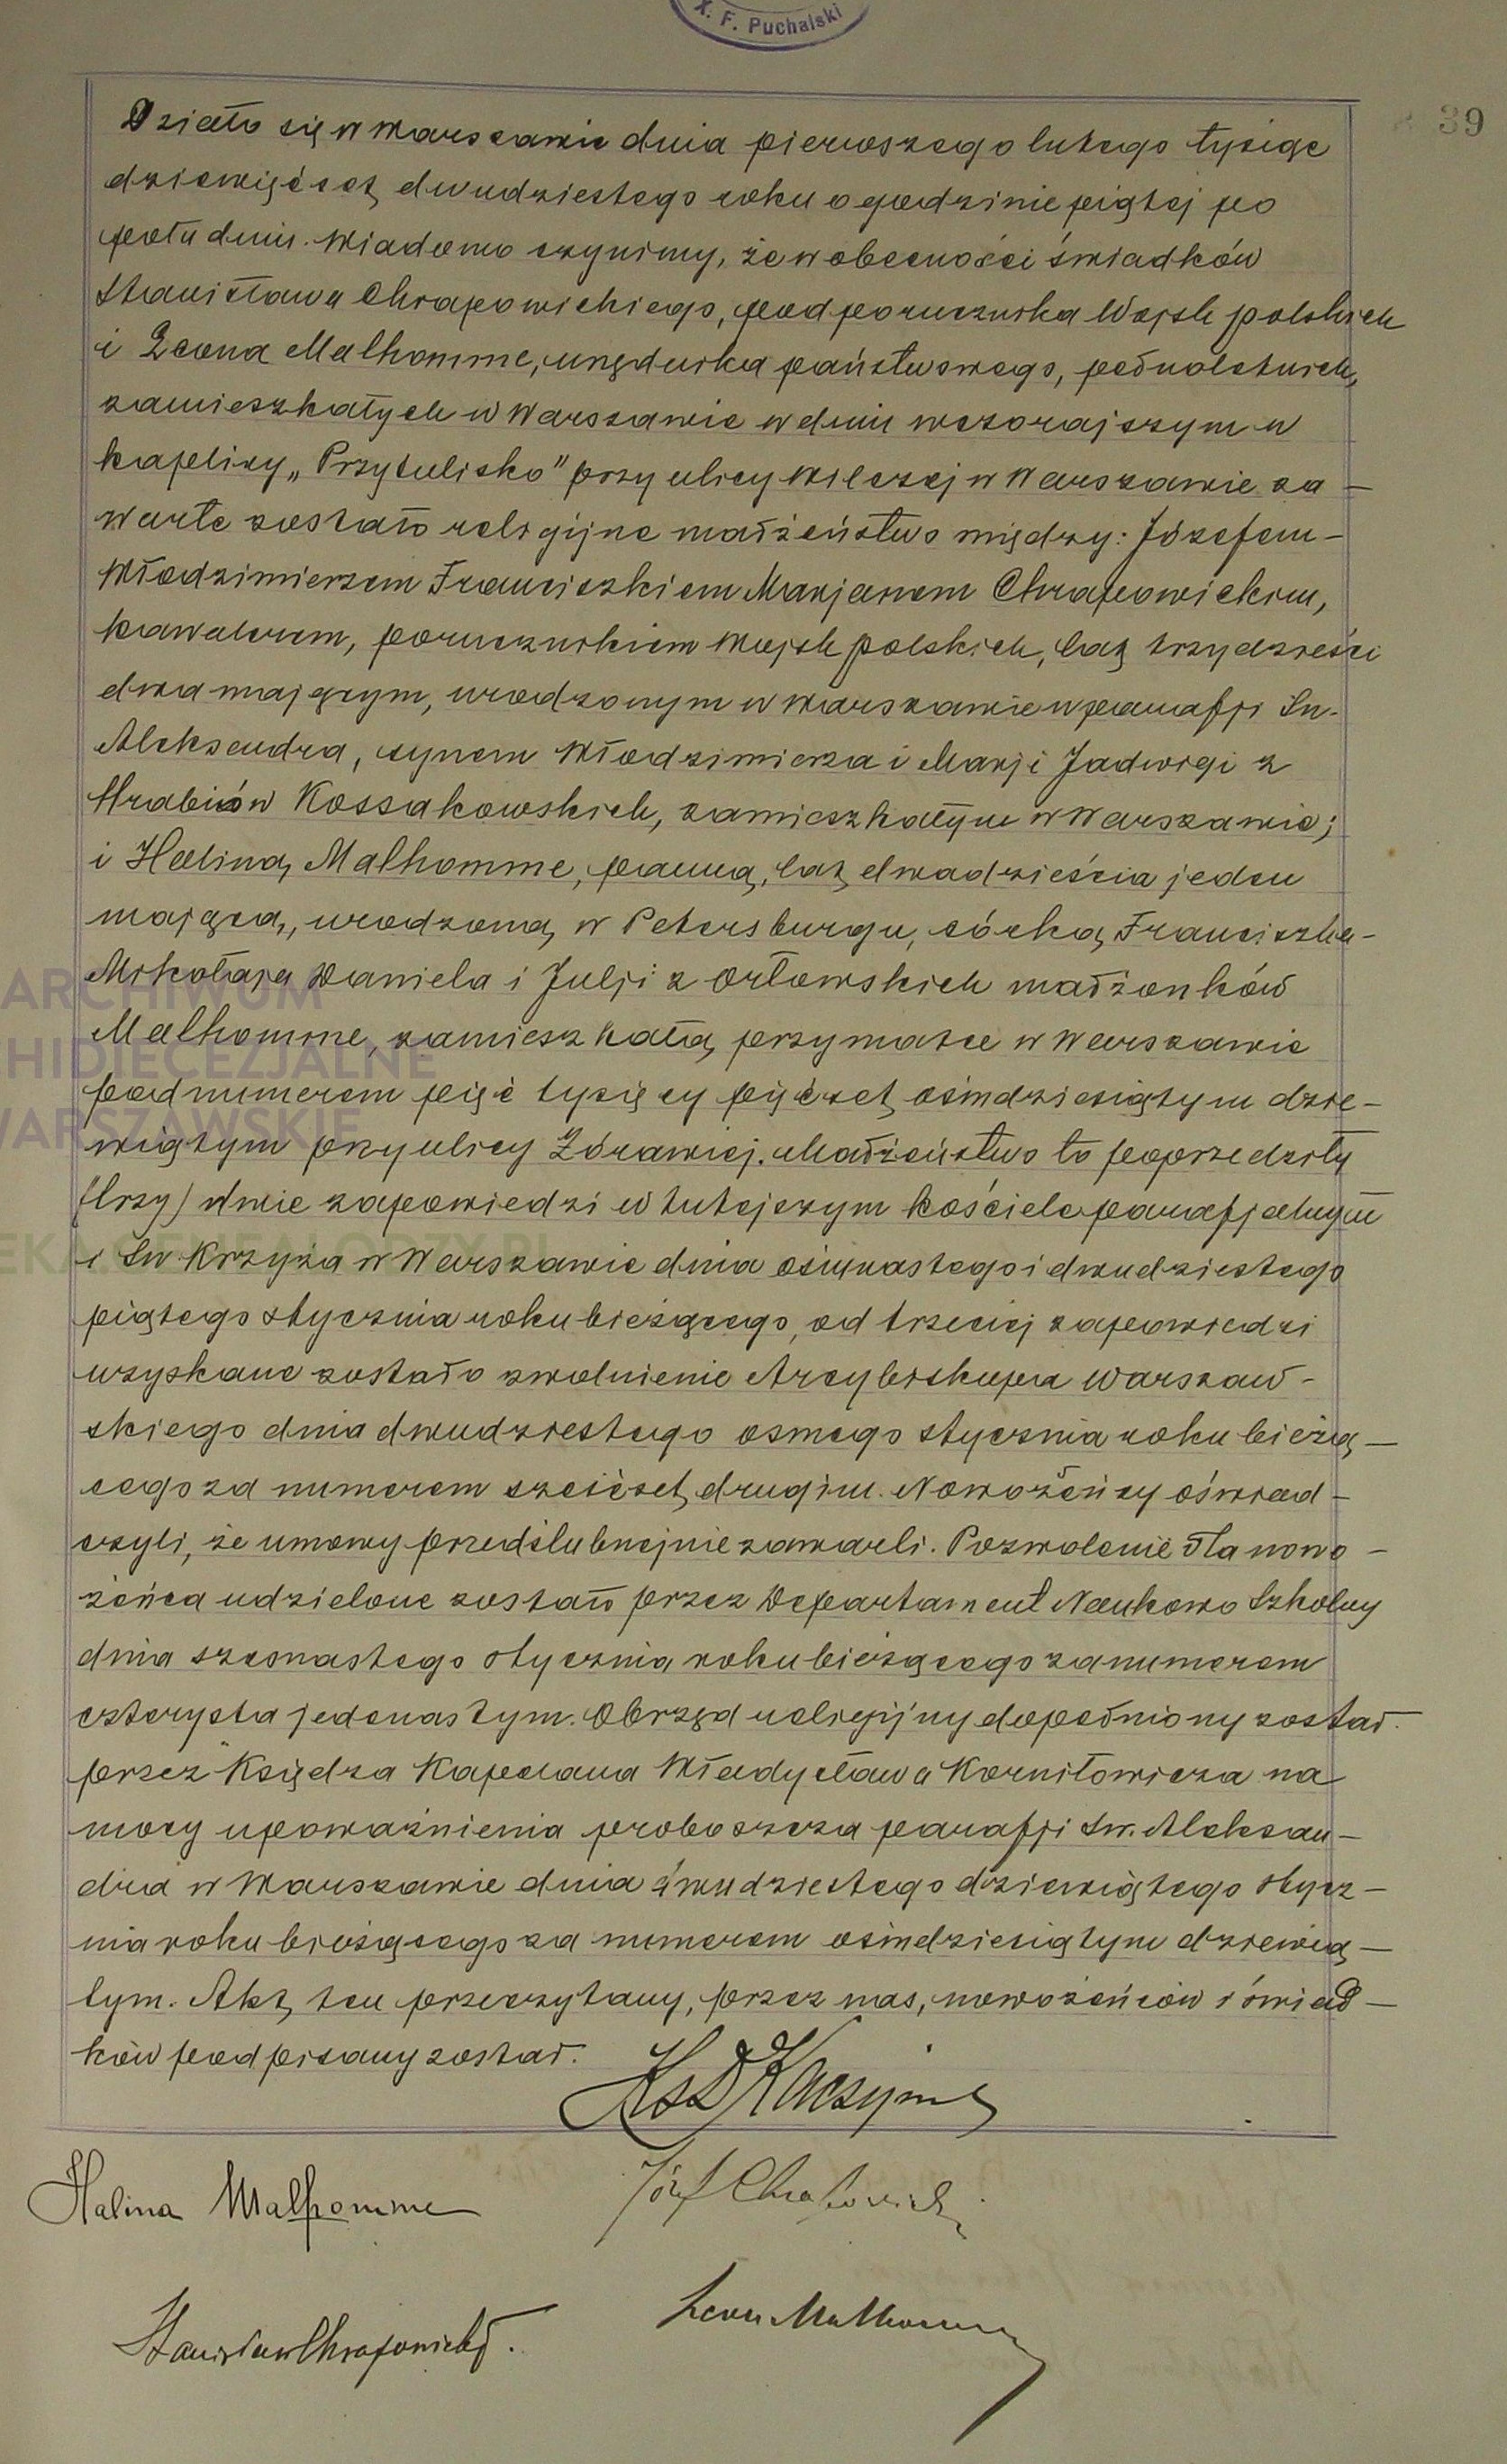 X. F. Puchalski
39
Działo się w Warszawie dnia pierwszego lutego tysiąc
dziewięćset dwudziestego roku o godzinie piątej po
południu. Wiadomo czynimy, że w obecności świadków
Stanisława Chrapowickiego, podporucznika Wojsk polskich
i Leona Malhomme, urzędnika państwowego, pełnoletnich,
zamieszkałych w Warszawie w dniu wczorajszym w
kaplicy „Przytulisko" przy ulicy Wilczej w Warszawie za —
warte zostało religijne małżeństwo między: Józefem —
Włodzimierzem Franciszkiem Marjanem Chrapowickim,
kawalerem, porucznikiem Wojsk polskich, lat trzydzieści
dwa mającym, urodzonym w Warszawie w parafji Św.
Aleksandra, synem Włodzimierza i Marji Jadwigi z
Hrabiów Kossakowskich, zamieszkałym w Warszawie;
i Haliną Malhomme, panną, lat dwadzieścia jeden
mającą, urodzoną w Petersburgu, córką Franciszka -
Mikołaja Daniela i Julji z Orłowskich małżonków
Malhomme, zamieszkałą przy matce w Warszawie
pod numerem pięć tysięcy pięćset ośmdziesiątym dzie —
wiątym przy ulicy Żórawiej. Małżeństwo to poprzedziły
(trzy) dwie zapowiedzi w tutejszym kościele parafjalnym
i Św Krzyża w Warszawie dnia ośmnastego i dwudziestego
piątego stycznia roku bieżącego, od trzeciej zapowiedzi
uzyskane zostało zwolnienie Arcybiskupa Warszaw -
skiego dnia dwudziestego osmego stycznia roku bieżą —
cego za numerem sześćset drugim. Nowożeńcy oświad —
czyli, że umowy przedślubnej nie zawarli. Pozwolenie dla nowo —
żeńca udzielone zostało przez Departament Naukowo Szkolny
dnia szesnastego stycznia roku bieżącego za numerem
czterysta jedenastym. Obrzęd religijny dopełniony został
przez Księdza Kapelana Władysława Korniłowicza na
mocy upoważnienia proboszcza parafji Św. Aleksan —
dra w Warszawie dnia dwudziestego dziewiątego stycz —
nia roku bieżącego za numerem ośmdziesiątym dziewią —
tym. Akt ten przeczytany, przez nas, nowożeńców i świad —
ków podpisany został.
Halina Malhomme
Józef Chrapowicki
Stanisław Chrapowicki.
Leon Malhomme
ARCHIWUM
HIDIECEZJALNE
WARSZAWSKIE